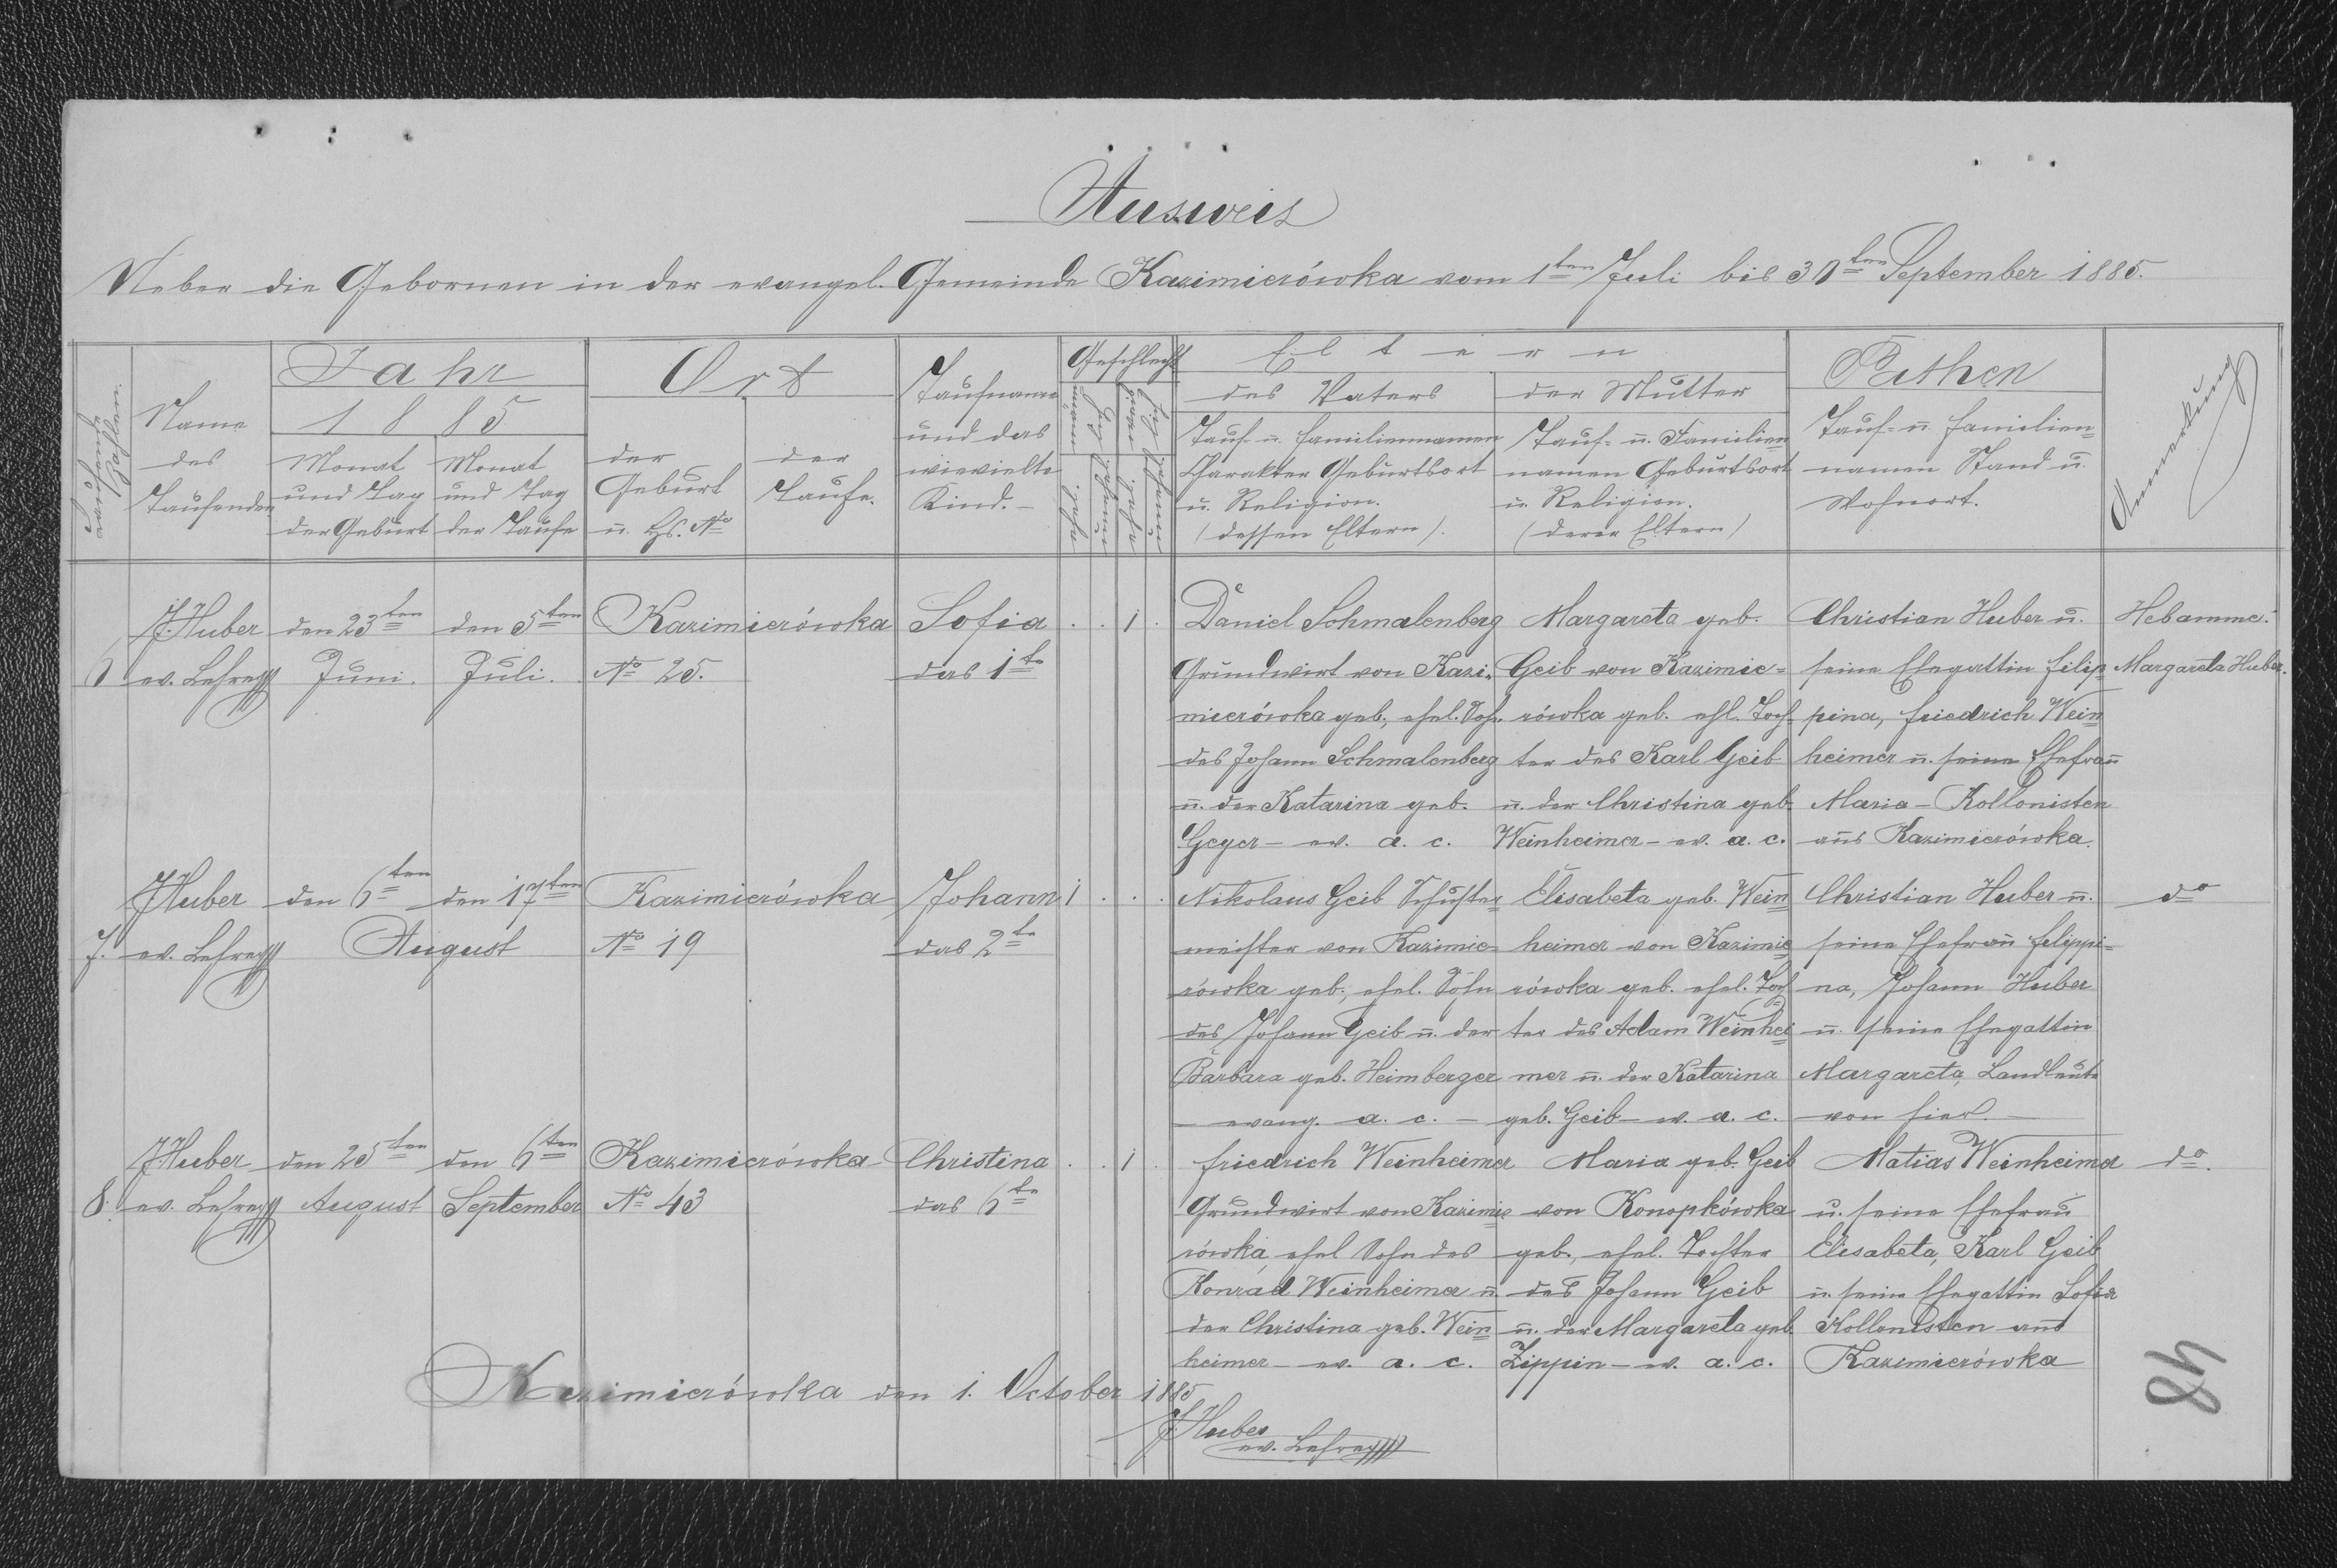 Ausweis
Ueber die Gebornen in der evangel. Gemeinde Kazimierówka vom 1ten Juli bis 30ten September 1885.
Laufende Zahlen.
Name
des
Taufenden
Jahr
1885
Monat
und Tag
der Geburt
Monat
und Tag
der Taufe
Ort
der
Geburt
u. Hs. No
der
Taufe.
Taufname
und das
wievielte
Kind. –
Geschlecht
Eltern
des Vaters
Tauf- u. Familiennamen
Charakter Geburtsort
u. Religion.
(dessen Eltern).
der Mutter
Tauf- u. Familien
namen Geburtsort
u. Religion.
(derer Eltern)
Pathen
Tauf- u. Familien=
namen Stand u.
Wohnort.
Anmerkung
6
J. Huber
ev. Lehrer
den 23ten
Juni.
den 5ten
Juli.
Kazimierówka
No 25.
Sofia
das 1te
. . 1 .
Daniel Schmalenberg
Grundwirt von Kazi=
mierówka geb., ehel. Sohn
des Johann Schmalenberg
u. der Katarina geb.
Geyer – ev. a. c.
Margareta geb.
Geib von Kazimie=
rówka geb. ehl. Toch=
ter des Karl Geib
u. der Christina geb.
Weinheimer – ev. a. c.
Christian Huber u.
seine Ehegattin Filip=
pina, Friedrich Wein=
heimer u. seine Ehefrau
Maria – Kollonisten
aus Kazimierówka.
Hebamme:
Margareta Huber.
7.
J. Huber
ev. Lehrer
den 6ten
den 17ten
August
Kazimierówka
No 19
Johann
das 2te
1 . . .
Nikolaus Geib Schuster=
meister von Kazimie=
rówka geb., ehel. Sohn
des Johann Geib u. der
Barbara geb. Heimberger
– evang. a. c. –
Elisabeta geb. Wein=
heimer von Kazimie=
rówka geb. ehel. Toch=
ter des Adam Weinhei=
mer u. der Katarina
geb. Geib – ev. a. c.
Christian Huber u.
seine Ehefrau Filippi=
na, Johann Huber
u. seine Ehegattin
Margareta, Landleute
von hier. –
do
8.
J. Huber
ev. Lehrer
den 25ten
August
den 6ten
September
Kazimierówka
No 43
Christina
das 6te
. . 1 .
Friedrich Weinheimer
Grundwirt von Kazimie=
rówka, ehel Sohn des
Konrad Weinheimer u.
der Christina geb. Wein=
heimer – ev. a. c.
Maria geb. Geib
von Konopkówka
geb., ehel. Tochter
des Johann Geib
u. der Margareta geb.
Zippin – ev. a. c.
Matias Weinheimer
u. seine Ehefrau
Elisabeta, Karl Geib
u. seine Ehegattin Sofia
Kollonisten aus
Kazimierówka
do.
Kazimierówka den 1. October 1885
J. Huber
ev. Lehrer
48